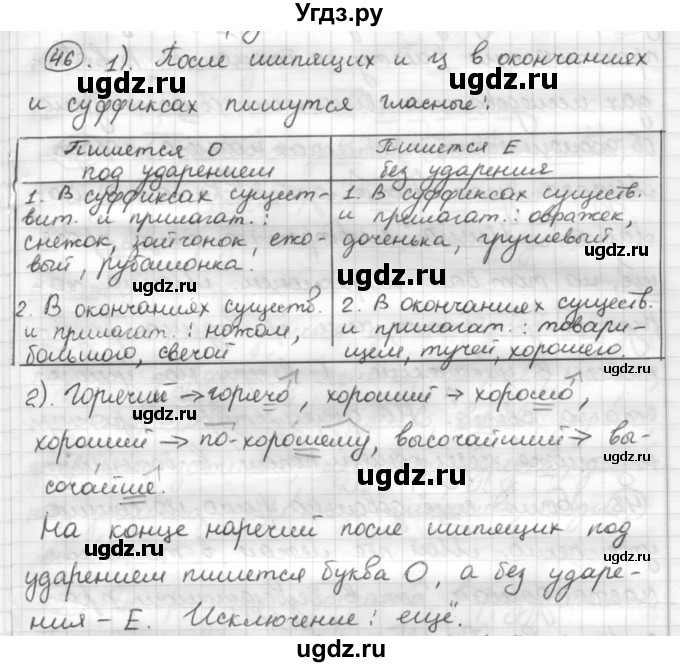 Угдз.ру
46. 1). После шипящих и ц в окончаниях
и суффиксах пишутся гласные:
Пишется О
под ударением
Пишется Е
без ударения
1. В суффиксах сущест-
вит. и прилагат.:
снежок, зайчонок, ежо-
вый, рубашонка.
1. В суффиксах существ.
и прилагат.: овражек,
доченька, грушевый
2. В окончаниях существ.
и прилагат.: ножом,
большого, свечой
2. В окончаниях существ.
и прилагат.: товари-
щем, тучей, хорошего.
2). Горячий → горячо, хороший → хорошо,
хороший → по-хорошему, высочайший → вы-
сочайше.
На конце наречий после шипящих под
ударением пишется буква О, а без ударе-
ния - Е. Исключение: ещё.
ugdz.ru
ugdz.ru
ugdz.ru
ugdz.ru
ugdz.ru
ugdz.ru
ugdz.ru
ugdz.ru
ugdz.ru
ugdz.ru
ugdz.ru
ugdz.ru